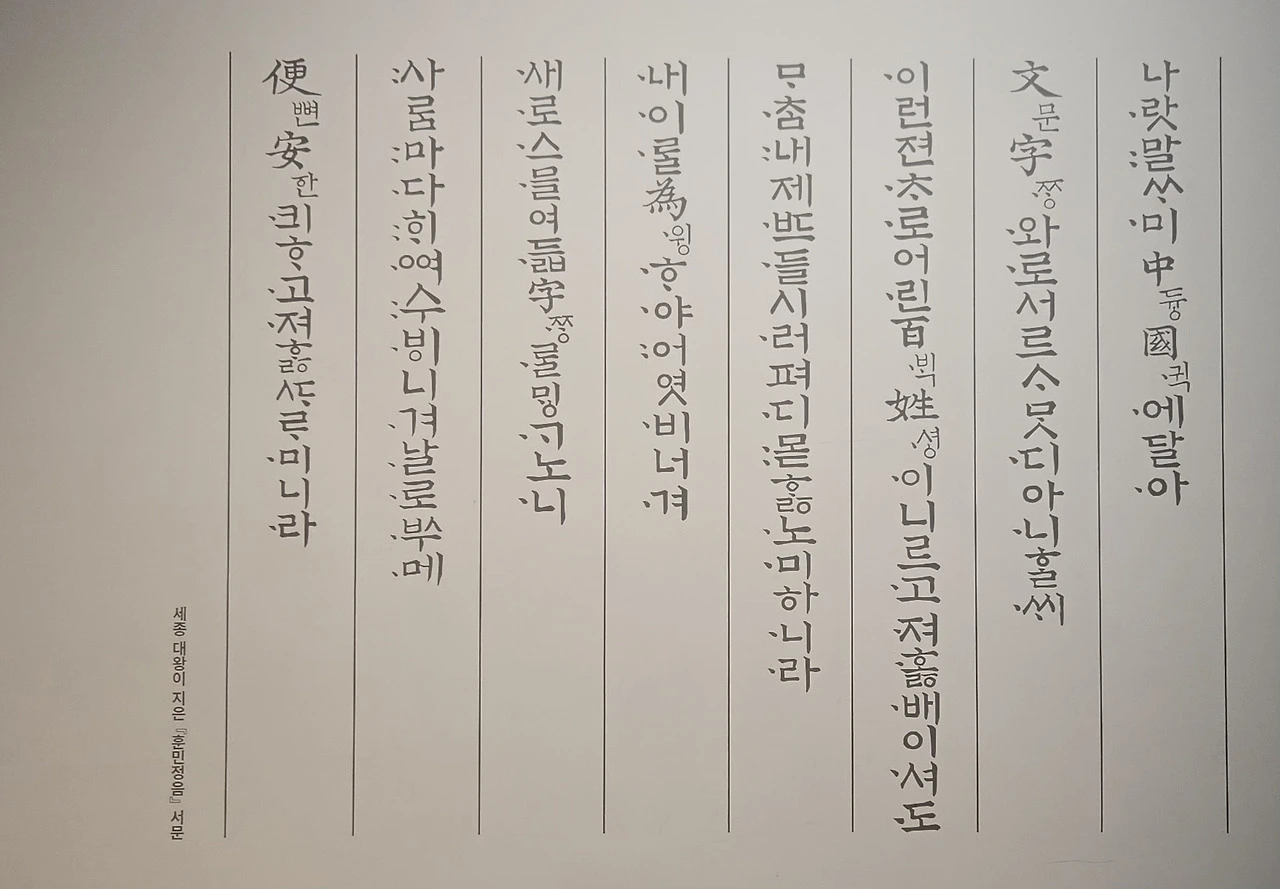 나·랏:말ᄊᆞ·미中듕國·귁·에달·아
文문字·ᄍᆞᆼ·와·로서르ᄉᆞᄆᆞᆺ·디아·니ᄒᆞᆯ·ᄊᆡ
·이런젼·ᄎᆞ·로어·린百·ᄇᆡᆨ姓·셩·이니르·고·져·ᄒᆞᇙ·배이·셔·도
ᄆᆞ·ᄎᆞᆷ:내제·ᄠᅳ·들시·러펴·디:몯ᄒᆞᇙ·노·미하·니·라
·내·이·ᄅᆞᆯ為·윙·ᄒᆞ·야:어엿비너·겨
·새·로·스·믈여·듧字·ᄍᆞᆼ·ᄅᆞᆯᄆᆡᇰ·ᄀᆞ노·니
:사ᄅᆞᆷ:마·다:ᄒᆡ·ᅇᅧ:수·ᄫᅵ니·겨·날·로·ᄡᅮ·메
便뼌安한·킈ᄒᆞ·고·져ᄒᆞᇙᄯᆞᄅᆞ·미니·라
세종 대왕이 지은 『훈민정음』 서문